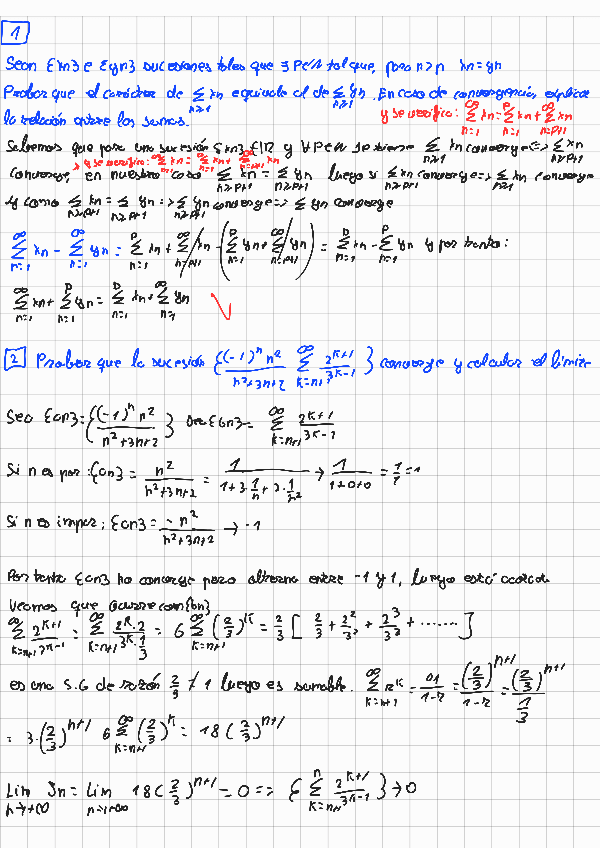 1
Sean {xn} e {yn} sucesiones tales que ∃ p∈ℕ tal que, para n>p xn=yn
Probar que el carácter de ∑_{n≥1} xn equivale al de ∑_{n≥1} yn. En caso de convergencia, explicar
la relación entre las sumas.
y se verifica: ∑_{n=1}^{∞} xn = ∑_{n=1}^{p} xn + ∑_{n=p+1}^{∞} xn
Sabemos que para una sucesión {xn}∈ℝ y ∀p∈ℕ se tiene ∑_{n≥1} xn converge <=> ∑_{n≥p+1} xn
y se verifica: ∑_{n=1}^{∞} xn = ∑_{n=1}^{p} xn + ∑_{n=p+1}^{∞} xn
converge, en nuestro caso ∑_{n≥p+1} xn = ∑_{n≥p+1} yn luego si ∑_{n≥p+1} xn converge => ∑_{n≥1} xn converge
y como ∑_{n≥p+1} xn = ∑_{n≥p+1} yn => ∑_{n≥p+1} yn converge => ∑_{n≥1} yn converge
∑_{n=1}^{∞} xn - ∑_{n=1}^{∞} yn = ∑_{n=1}^{p} xn + ∑_{n=p+1}^{∞} xn - (∑_{n=1}^{p} yn + ∑_{n=p+1}^{∞} yn) = ∑_{n=1}^{p} xn - ∑_{n=1}^{p} yn y por tanto:
∑_{n=1}^{∞} xn + ∑_{n=1}^{p} yn = ∑_{n=1}^{p} xn + ∑_{n=1}^{∞} yn
2 Probar que la sucesión {(-1)^n n^2/(n^2+3n+2) ∑_{k=n+1}^{∞} 2^{k+1}/3^{k-1}} converge y calcular el límite
Sea {an} = {(-1)^n n^2/(n^2+3n+2)} {bn} = ∑_{k=n+1}^{∞} 2^{k+1}/3^{k-1}
Si n es par: {an} = n^2/(n^2+3n+2) = 1/(1+3·1/n+2·1/n^2) → 1/(1+0+0) = 1/1 = 1
Si n es impar: {an} = -n^2/(n^2+3n+2) → -1
Por tanto {an} no converge pero alterna entre -1 y 1, luego está acotada
Veamos que ocurre con {bn}
∑_{k=n+1}^{∞} 2^{k+1}/3^{k-1} = ∑_{k=n+1}^{∞} 2^k·2/(3^k·1/3) = 6 ∑_{k=n+1}^{∞} (2/3)^k = 2/3 [2/3 + 2^2/3^2 + 2^3/3^3 + ......]
es una S.G de razón 2/3 ≠ 1 luego es sumable. ∑_{k=n+1}^{∞} r^k = a1/(1-r) = (2/3)^{n+1}/(1-r) = (2/3)^{n+1}/(1/3)
= 3·(2/3)^{n+1} 6 ∑_{k=n+1}^{∞} (2/3)^k = 18 (2/3)^{n+1}
Lim_{n→+∞} Sn = Lim_{n→+∞} 18 (2/3)^{n+1} = 0 => {∑_{k=n+1}^{n} 2^{k+1}/3^{k-1}} → 0